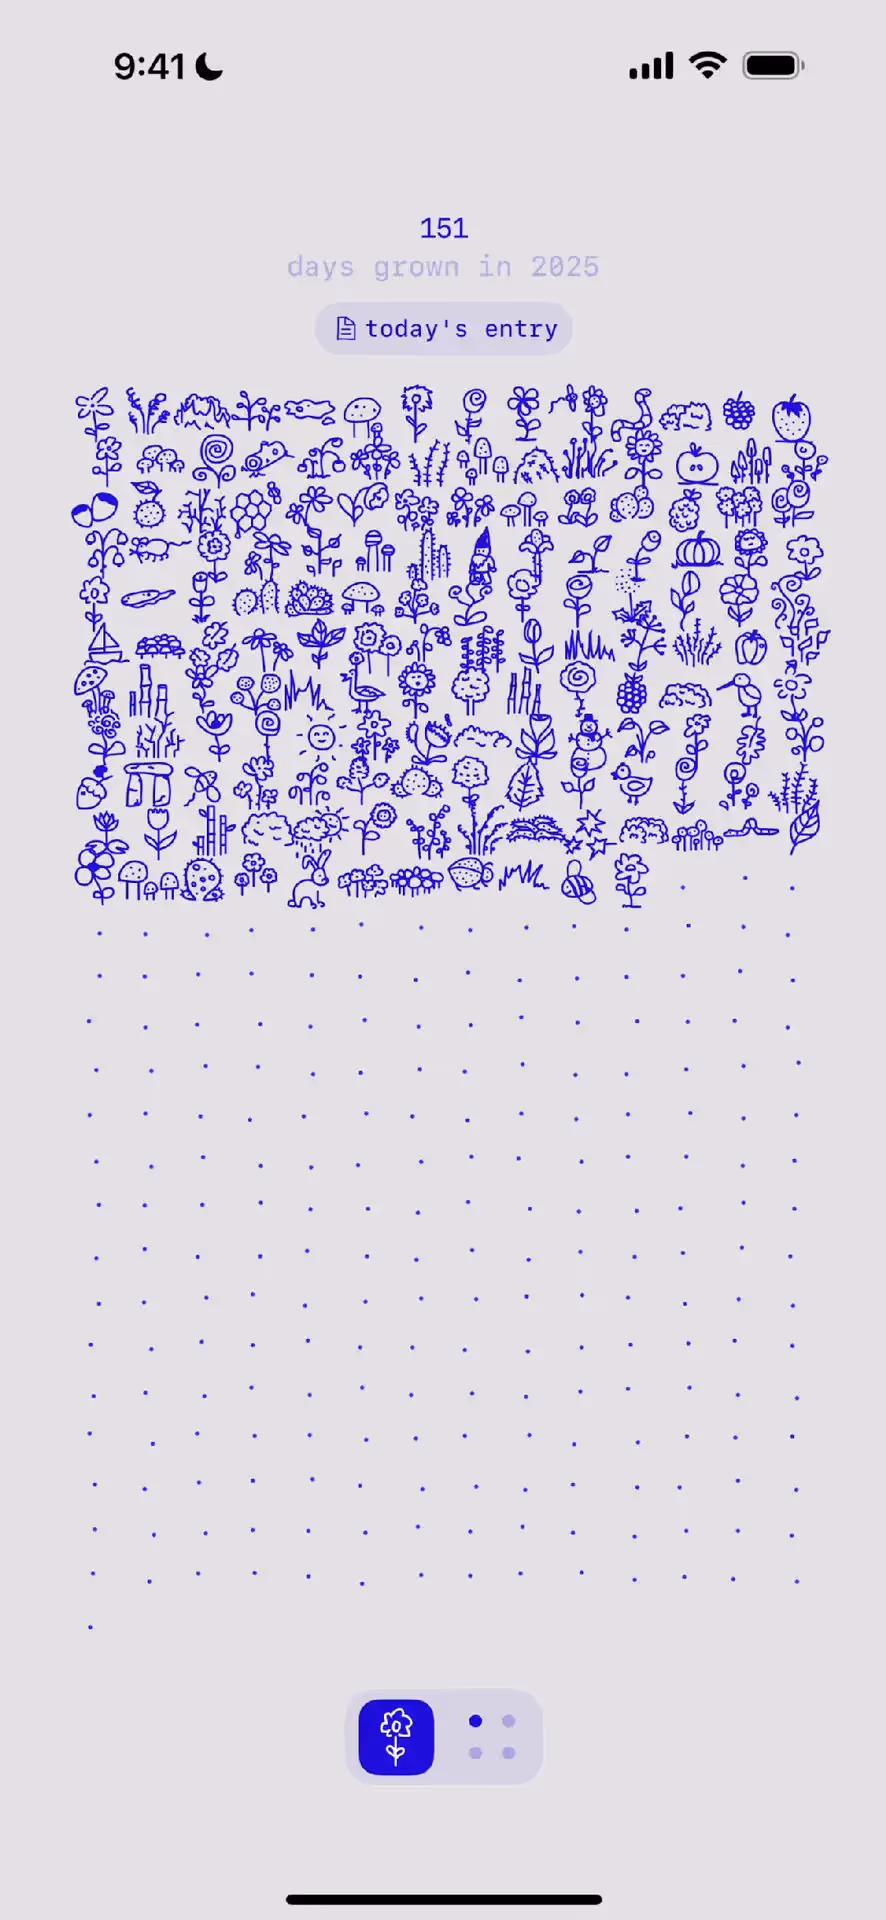 9:41
151
days grown in 2025
today's entry